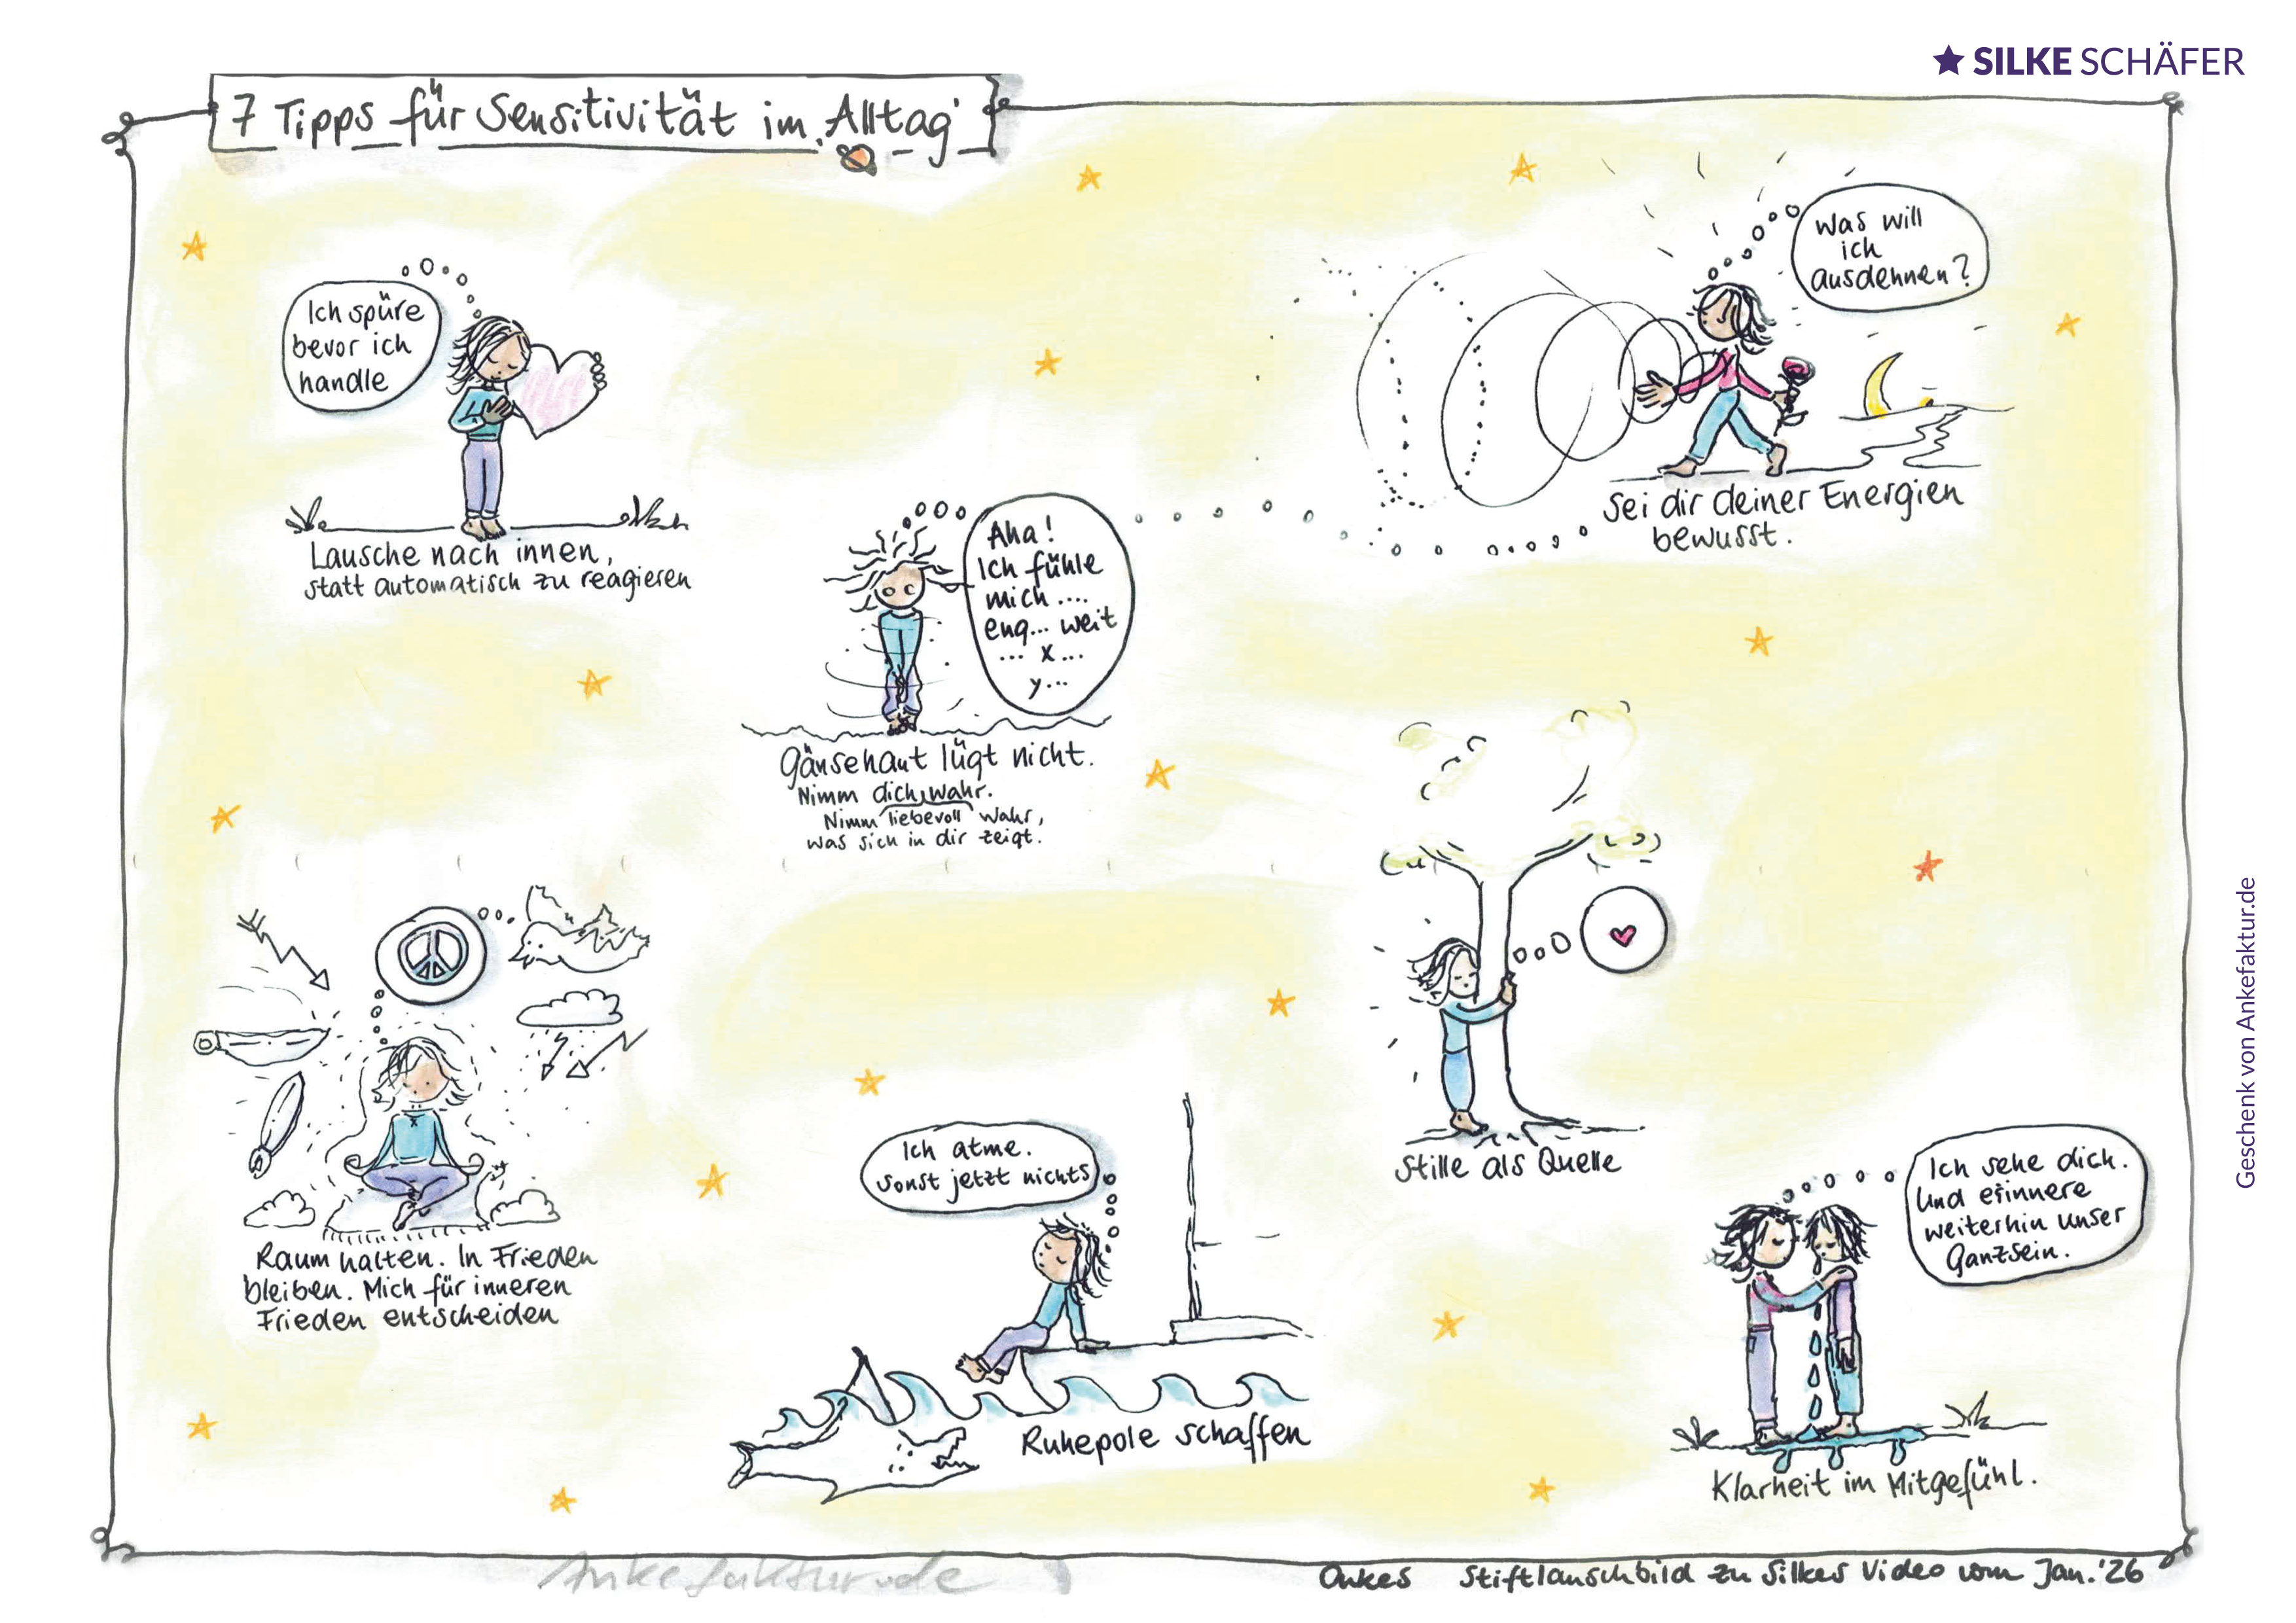 SILKE SCHÄFER
7 Tipps für Sensitivität im Alltag
Ich spüre
bevor ich
handle
Lausche nach innen,
statt automatisch zu reagieren
Aha!
Ich fühle
mich ....
eng... weit
... x ...
y...
Gänsehaut lügt nicht.
Nimm dich wahr.
Nimm liebevoll wahr,
was sich in dir zeigt.
Was will
ich
ausdehnen?
Sei dir deiner Energien
bewusst.
Raum halten. In Frieden
bleiben. Mich für inneren
Frieden entscheiden
Ich atme.
Sonst jetzt nichts
Ruhepole schaffen
Stille als Quelle
Ich sehe dich.
Und erinnere
weiterhin unser
Ganzsein.
Klarheit im Mitgefühl.
Geschenk von Ankefaktur.de
Ankefaktur.de
Ankes Stiftlauschbild zu Silkes Video vom Jan. '26